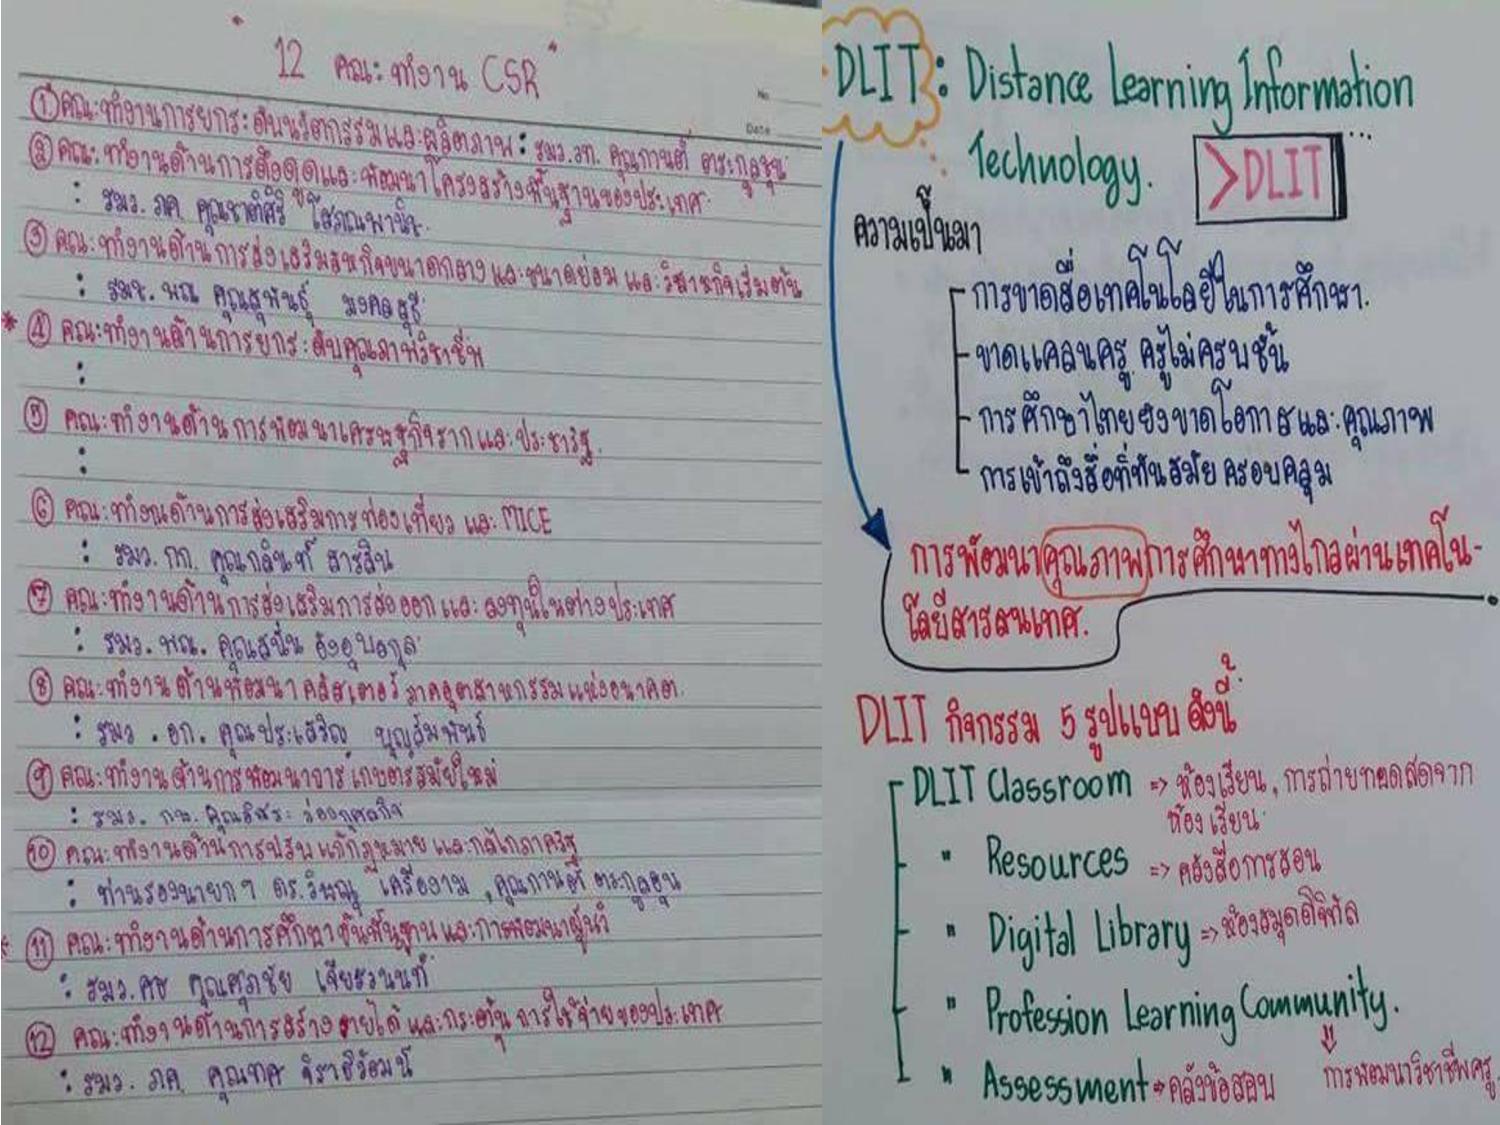 " 12 คณะทำงาน CSR "
No.
Date
① คณะทำงานการยกระดับนวัตกรรมและผลิตภาพ : รมว.วท. คุณกานต์ ตระกูลฮุน
② คณะทำงานด้านการดึงดูดและพัฒนาโครงสร้างพื้นฐานของประเทศ
: รมว. กค. คุณชาติศิริ โสภณพานิช
③ คณะทำงานด้านการส่งเสริมสหกิจขนาดกลางและขนาดย่อม และวิสาหกิจเริ่มต้น
: รมช. พณ คุณสุพันธุ์ มงคลสุธี
* ④ คณะทำงานด้านการยกระดับคุณภาพวิชาชีพ
:
⑤ คณะทำงานด้านการพัฒนาเศรษฐกิจรากและประชารัฐ
:
⑥ คณะทำงานด้านการส่งเสริมการท่องเที่ยว และ MICE
: รมว. กก. คุณกลินท์ สารสิน
⑦ คณะทำงานด้านการส่งเสริมการส่งออกและลงทุนในต่างประเทศ
: รมว. พณ. คุณสนั่น อังอุบลกุล
⑧ คณะทำงานด้านพัฒนาคลัสเตอร์ภาคอุตสาหกรรมแห่งอนาคต
: รมว. อก. คุณประเสริฐ บุญสัมพันธ์
⑨ คณะทำงานด้านการพัฒนาการเกษตรสมัยใหม่
: รมว. กษ. คุณอิสระ ว่องกุศลกิจ
⑩ คณะทำงานด้านการปรับแก้กฎหมายและกลไกภาครัฐ
: ท่านรองนายกฯ ดร.วิษณุ เครืองาม , คุณกานต์ ตระกูลฮุน
* ⑪ คณะทำงานด้านการศึกษาขั้นพื้นฐานและการพัฒนาผู้นำ
: รมว.ศธ คุณศุภชัย เจียรวนนท์
⑫ คณะทำงานด้านการสร้างรายได้และกระตุ้นการใช้จ่ายของประเทศ
: รมว. กค. คุณทศ จิราธิวัฒน์
DLIT : Distance Learning Information
Technology.
>DLIT
ความเป็นมา
- การขาดสื่อเทคโนโลยีในการศึกษา.
- ขาดแคลนครู ครูไม่ครบชั้น
- การศึกษาไทยยังขาดโอกาสและคุณภาพ
- การเข้าถึงสื่อที่ทันสมัย ครอบคลุม
การพัฒนาคุณภาพการศึกษาทางไกลผ่านเทคโน-
โลยีสารสนเทศ.
DLIT กิจกรรม 5 รูปแบบ ดังนี้
DLIT Classroom => ห้องเรียน, การถ่ายทอดสดจาก
ห้องเรียน
- " Resources => คลังสื่อการสอน
- " Digital Library => ห้องสมุดดิจิทัล
- " Profession Learning Community.
- " Assessment => คลังข้อสอบ
การพัฒนาวิชาชีพครู